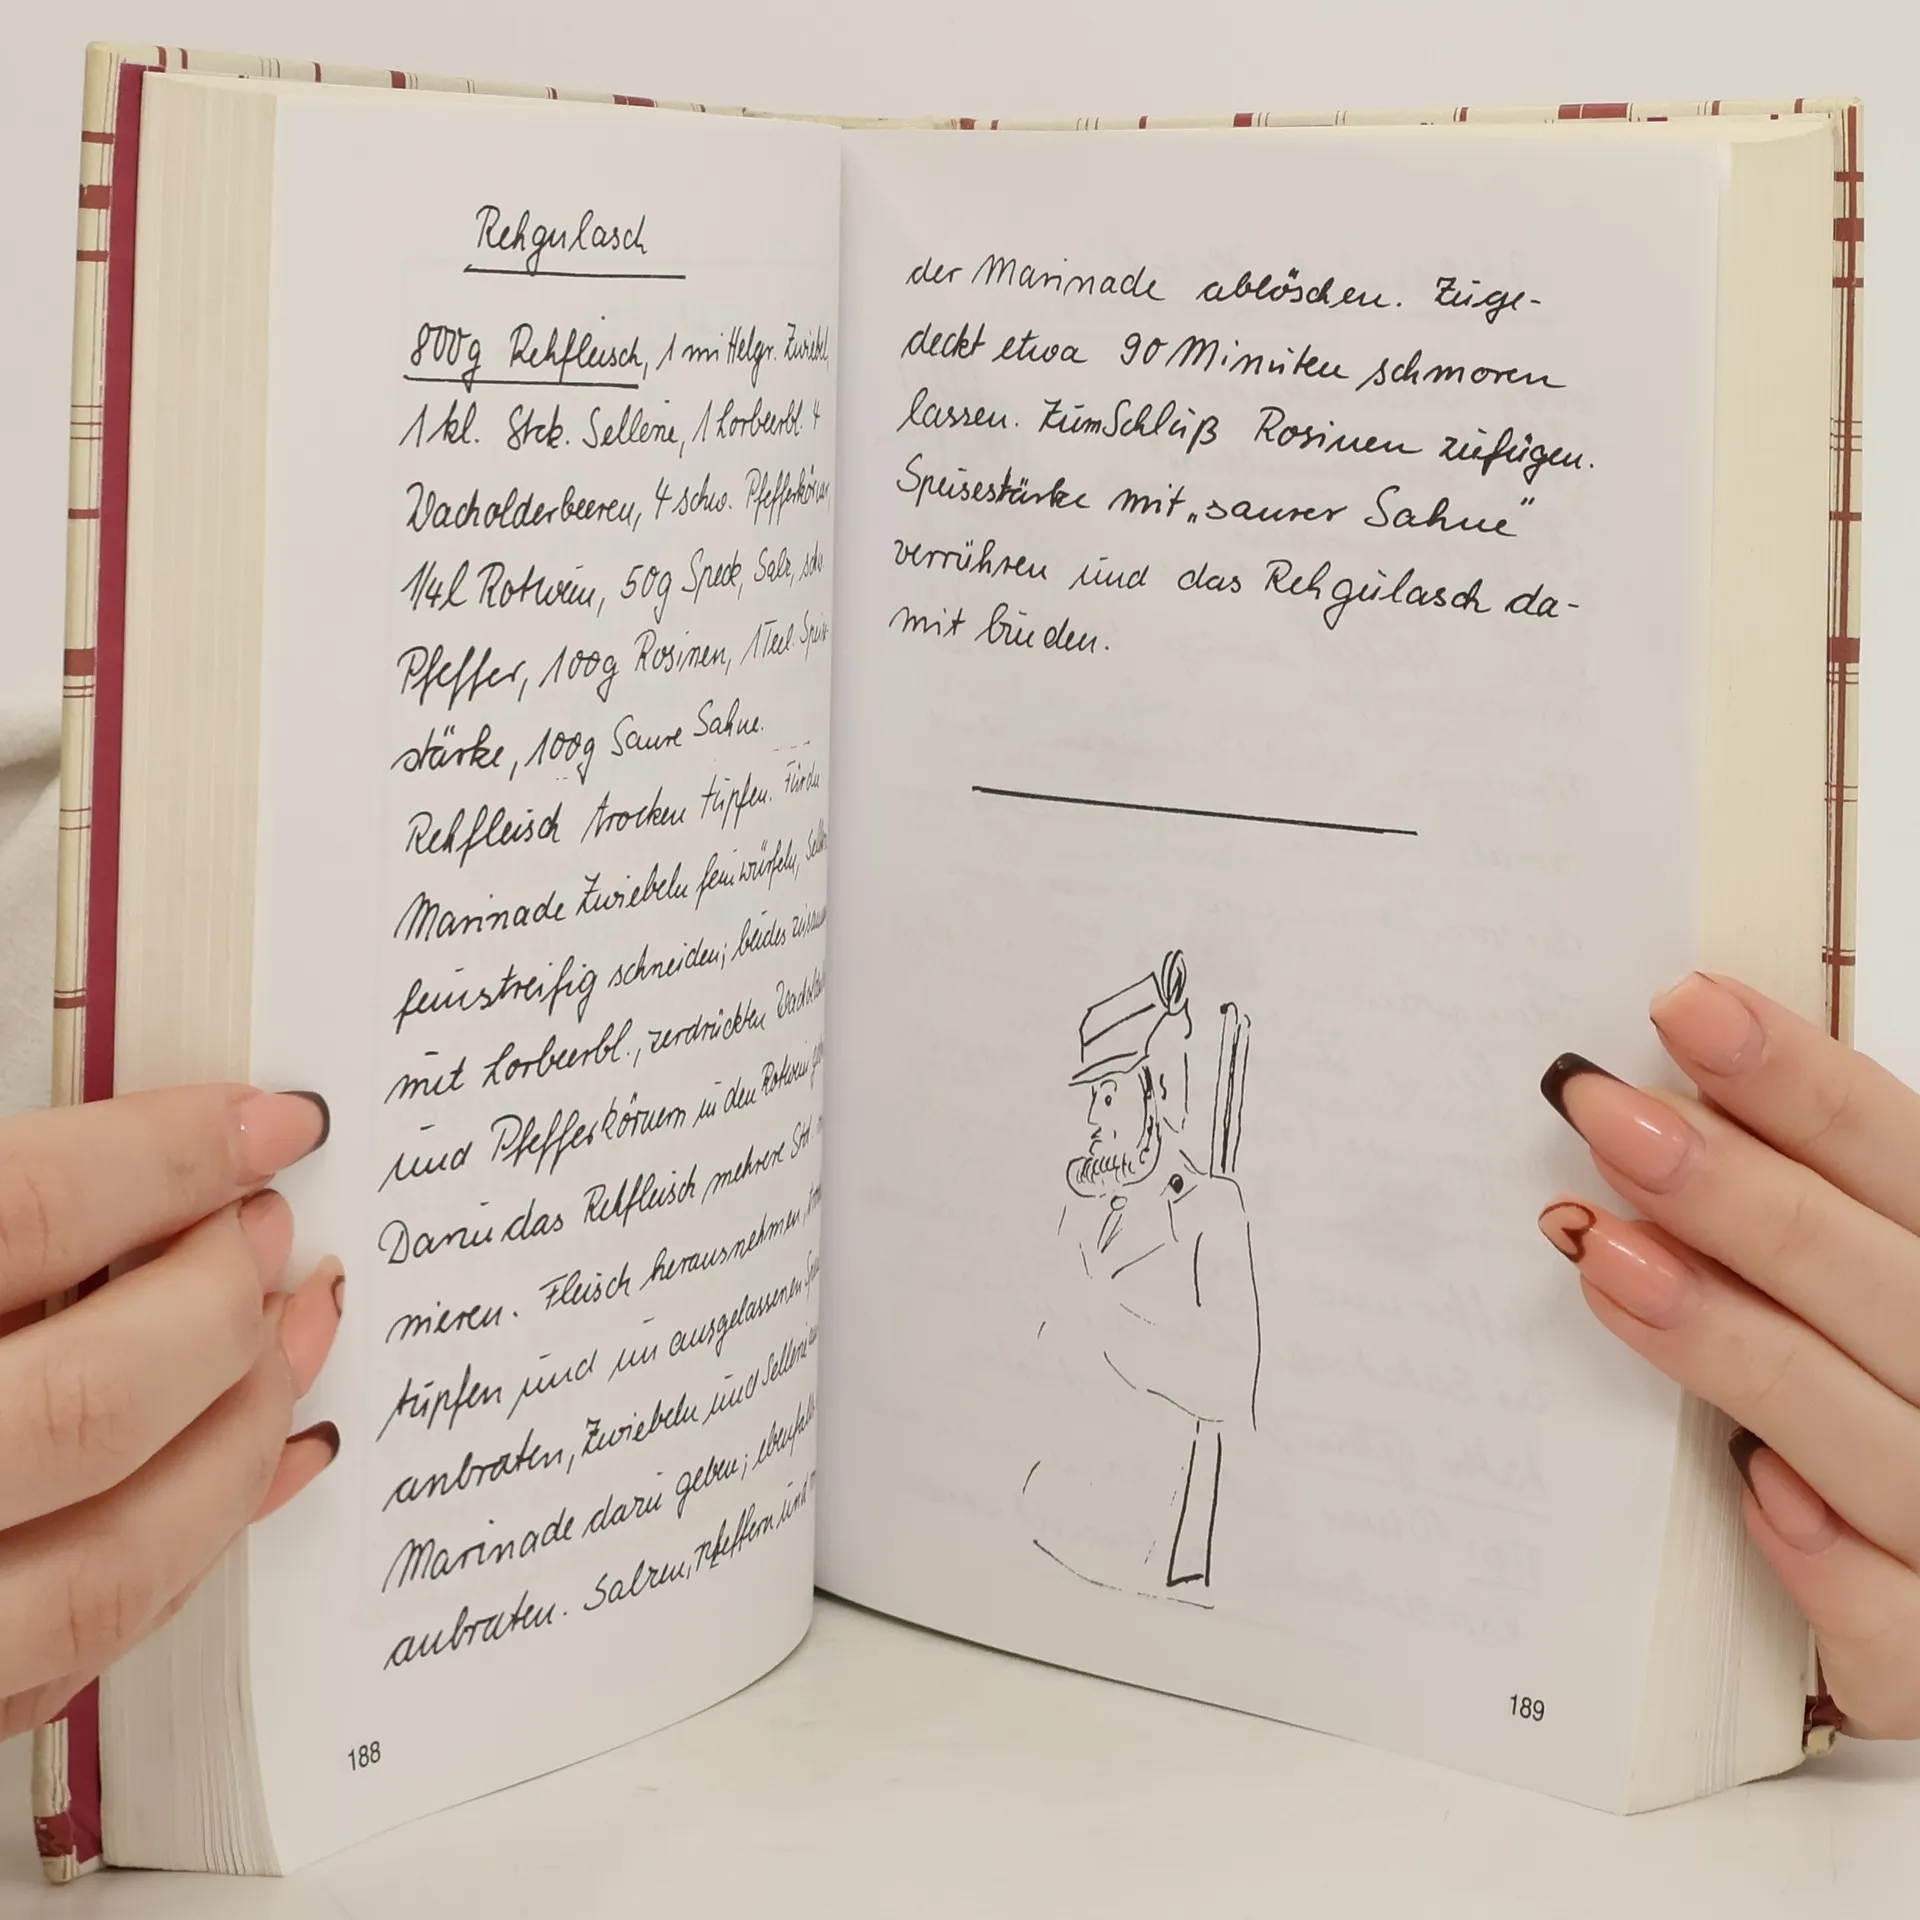 Rehgulasch
800g Rehfleisch, 1 mittelgr. Zwiebel,
1 kl. Stck. Sellerie, 1 Lorbeerbl. 4
Wacholderbeeren, 4 schw. Pfefferkörner,
1/4l Rotwein, 50g Speck, Salz, schw.
Pfeffer, 100g Rosinen, 1 Teel. Speise-
stärke, 100g Saure Sahne.
Rehfleisch trocken tupfen. Für die
Marinade Zwiebeln fein würfeln,
feinstreifig schneiden; beides
mit Lorbeerbl., zerdrückten
und Pfefferkörnern in den Rotwein
Dazu das Rehfleisch mehrere Std.
nieren. Fleisch herausnehmen,
tupfen und im ausgelassenen
anbraten, Zwiebeln und Sellerie
Marinade dazu geben; ebenfalls
anbraten. Salzen, pfeffern und
188
der Marinade ablöschen. Zuge-
deckt etwa 90 Minuten schmoren
lassen. Zum Schluß Rosinen zufügen.
Speisestärke mit „saurer Sahne"
verrühren und das Rehgulasch da-
mit binden.
189